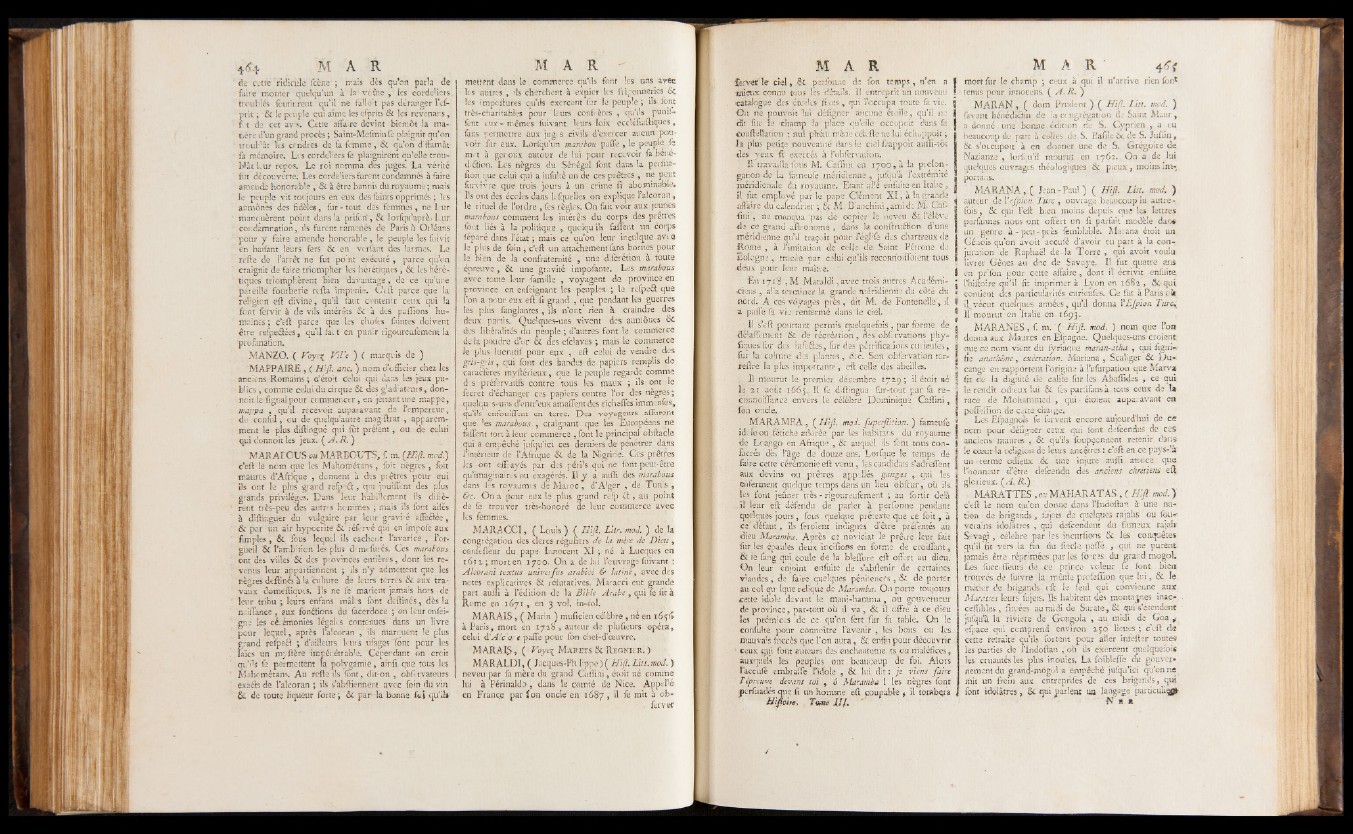 464 M A R
de cette ridicule scène ; mais dès qu'on parla de
faire monter quelqu'un à la voûte , les cordeliers
troublés soutinrent qu'il ne falloit pas déranger l'es-
prit ; & le peuple qui aime les esprits & les revenans,
fut de cet avis. Cette affaire devint bientôt la ma-
tière d'un grand procès ; Saint-Mesmin se plaignit qu'on
troubloit les cendres de sa femme, & qu'on diffamât
sa mémoire. Les cordeliers se plaignirent qu'elle trou-
blât leur repos. Le roi nomma des juges. La vérité
fut découverte. Les cordeliers furent condamnés à faire
amende honorable , & à être bannis du royaume ; mais
le peuple vit toujours en eux des saints opprimés ; les
aumônes des fidèles, sur-tout des femmes , ne leur
manquèrent point dans la prison, & lorsqu'après leur
condamnation, ils furent ramenés de Paris à Orléans
pour y faire amende honorable, le peuple les suivit
en baisant leurs fers & en versant des larmes. Le
reste de l'arrêt ne fut point exécuté , parce qu'on
craignit de faire triompher les hérétiques, & les héré-
tiques triomphèrent bien davantage, de ce qu'une
pareille fourberie resta impunie. C'est parce que la
religion est divine, qu'il faut contenir ceux qui la
font servir à de vils intérêts & à des passions hu-
maines ; c'est parce que les choses saintes doivent
être respectées, qu'il faut en punir rigoureusement la
profanation.
MANZO. ( Voyez Ville ) ( marquis de )
MAPPAIRE, ( Hist. anc. ) nom d'officier chez les
anciens Romains ; c'étoit celui qui dans les jeux pu-
blics, comme celui du cirque & des gladiateurs, don-
noit le signal pour commencer, en jettant une mappe,
mappa , qu'il recevoit auparavant de l'empereur,
du consul , ou de quelqu'autre magistrat , apparem-
ment le plus distingué qui fût présent, ou de celui
qui donnoit les jeux. ( A. R. )
MARABOUS ou MARBOUTS, f. m. (Hist. mod.)
c'est le nom que les Mahométans, soit nègres , soit
maures d'Afrique , donnent à des prêtres pour qui
ils ont le plus grand respect , qui jouissent des plus
grands privilèges. Dans leur habillement ils diffè-
rent très-peu des autres hommes ; mais ils sont aisés
à distinguer du vulgaire par leur gravité affectée ,
& par un air hypocrite & réservé qui en impose aux
simples, & sous lequel ils cachent l'avarice , l'or-
gueil & l'ambition les plus démesurés. Ces marabous
ont des villes & des provinces entières, dont les re-
venus leur appartiennent ; ils n'y admettent que les
nègres destinés à la culture de leurs terres & aux tra-
vaux domestiques. Ils ne se marient jamais hors de
leur tribu ; leurs enfans mâles sont destinés, dès la
naissance , aux fonctions du sacerdoce ; on leur ensei-
gne les cérémonies légales contenues dans un livre
pour lequel, après l'alcoran , ils marquent le plus
grand respect ; d'ailleurs leurs usages sont pour les
laïcs un mystère impénétrable. Cependant on croit
qu'ils se permettent la polygamie, ainsi que tous les
Mahométans. Au reste ils sont, dit-on , observateurs
exacts de l'alcoran ; ils s'abstiennent avec soin du vin
& de toute liqueur forte ; & par la bonne foi qu'ils
M A R
mettent dans le commerce qu'ils font les uns avec
les autres , ils cherchent à expier les friponneries &
les impostures qu'ils exercent sur le peuple ; ils sont
très-charitables pour leurs confrères , qu'ils punis-
sent eux-mêmes suivant leurs loix ecclésiastiques ,
sans permettre aux juges civils d'exercer aucun pou-
voir sur eux. Lorsqu'un marabou passe , le peuple se
met à genoux autour de lui pour recevoir sa béné-
diction. Les nègres du Sénégal sont dans la persua-
sion que celui qui a insulté un de ces prêtres , ne peut
survivre que trois jours à un crime si abominable.
Ils ont des écoles dans lesquelles on explique l'alcoran ,
le rituel de l'ordre, ses règles. On fait voir aux jeunes
marabous comment les intérêts du corps des prêtres
sont liés à la politique , quoiqu'ils fassent un corps
séparé dans l'état ; mais ce qu'on leur inculque avec
le plus de soin , c'est un attachement sans bornes pour
le bien de la confraternité , une discrétion à toute
épreuve, & une gravité imposante. Les marabous
avec toute leur famille , voyagent de province en
province en enseignant les peuples ; le respect que
l'on a pour eux est si grand , que pendant les guerres
les plus sanglantes, ils n'ont rien à craindre des
deux partis. Quelques-uns vivent des aumônes &
des libéralités du peuple ; d'autres font le commerce
de la poudre d'or & des esclaves ; mais le commerce
le plus lucratif pour eux , est celui de vendre des
gris-gris, qui sont des bandes de papiers remplis de
caractères mystérieux , que le peuple regarde comme
des préservatifs contre tous les maux ; ils ont le
secret d'échanger ces papiers contre l'or des nègres ;
quelques-uns d'entr'eux amassent des richesses immenses,
qu'ils enfouissent en terre. Des voyageurs assurent
que les marabous , craignant que les Européens ne
fassent tort à leur commerce , sont le principal obstacle
qui a empêché jusqu'ici ces derniers de pénétrer dans
l'intérieur de l'Afrique & de la Nigritie. Ces prêtres
les ont effrayés par des périls qui ne sont peut-être
qu'imaginaires ou exagérés. Il y a aussi des marabous
dans les royaumes de Maroc , d'Alger , de Tunis ,
&c. On a pour eux le plus grand respect , au point
de se trouver très-honoré de leur commerce avec
les femmes.
MARACCI, ( Louis ) ( Hist. Litt. mod. ) de la
congrégation des clercs réguliers de la mère de Dieu ,
confesseur du pape Innocent XI ; né à Lucques en
1612 ; mort en 1700. On a de lui l'ouvrage suivant :
Alcorani textus universus arabicè & latinè, avec des
notes explicatives & réfutatives. Maracci eut grande
part aussi à l'édition de la Bible Arabe , qui se fit à
Rome en 1671 , en 3 vol. in-fol.
MARAIS, ( Marin ) musicien célèbre, né en 1656
à Paris, mort en 1728 , auteur de plusieurs opéra,
celui d'Alcione passe pour son chef-d'œuvre.
MARAIS, ( Voyez MARETS & REGNIER. )
MARALDI, ( Jacques-Philippe ) ( Hist. Litt. mod. )
neveu par sa mère du grand Cassini , étoit né comme
lui à Périnaldo , dans le comté de Nice. Appellé
en France par son oncle en 1687 , il se mit à ob-
server
M A R
server le ciel , & personne de son temps , n'en a
mieux connu tous les détails. Il entreprit un nouveau
catalogue des étoiles fixes, qui l'occupa toute sa vie.
On ne pouvoit lui désigner aucune étoile, qu'il ne
dît sur le champ la place qu'elle occupoit dans sa
constellation ; nul phénomène céleste ne lui échappoit ;
la plus petite nouveauté dans le ciel frappoit aussi-tôt
des yeux si exercés à l'observation.
Il travailla sous M. Cassini en 1700, à la prolon-
gation de la fameuse méridienne , jusqu'à l'extrémité
méridionale du royaume. Étant allé ensuite en Italie ,
il fut employé par le pape Clément XI , à la grande
affaire du calendrier ; & M. Bianchini, ami de M. Cas-
sini , ne manqua pas de copier le neveu & l'élève
de ce grand astronome , dans la construction d'une
méridienne qu'il traçoit pour l'église des chartreux de
Rome , à l'imitation de celle de Saint Pétrone de
Bologne , tracée par celui qu'ils reconnoissoient tous
deux pour leur maître.
En 1718 , M. Maraldi, avec trois autres Académi-
ciens , alla terminer la grande méridienne du côté du
nord. A ces voyages près, dit M. de Fontenelle, il
a passé sa vie renfermé dans le ciel.
Il s'est pourtant permis quelquefois, par forme de
délassement & de récréation, des observations phy-
siques sur des insectes, sur des pétrifications curieuses,
sur la culture des plantes, &c. Son observation ter-
restre la plus importante , est celle des abeilles.
Il mourut le premier décembre 1729 ; il étoit né
le 21 août 1665. Il se distingua sur-tout par sa re-
connoissance envers le célèbre Dominique Cassini ,
son oncle.
MARAMBA , ( Hist. mod. superstition. ) fameuse
idole ou fétiche adorée par les habitans du royaume
de Loango en Afrique , & auquel ils sont tous con-
sacrés dès l'âge de douze ans. Lorsque le temps de
faire cette cérémonie est venu , les candidats s'adressent
aux devins ou prêtres appellés gangas , qui les
enferment quelque temps dans un lieu obscur, où ils
les font jeûner très-rigoureusement ; au sortir delà
il leur est défendu de parler à personne pendant
quelques jours , sous quelque prétexte que ce soit , à
ce défaut , ils seroient indignes d'être présentés au
dieu Maramba. Après ce noviciat le prêtre leur fait
sur les épaules deux incisions en forme de croissant ,
& le sang qui coule de la blessure est offert au dieu.
On leur enjoint ensuite de s'abstenir de certaines
viandes , de faire quelques pénitences , & de porter
au col quelque relique de Maramba. On porte toujours
cette idole devant le mani-hamma , ou gouverneur
de province, par-tout où il va , & il offre à ce dieu
les prémices de ce qu'on sert sur sa table. On le
consulte pour connoître l'avenir , les bons ou les
mauvais succès que l'on aura , & enfin pour découvrir
ceux qui sont auteurs des enchantemens ou maléfices,
auxquels les peuples ont beaucoup de foi. Alors
l'accusé embrasse l'idole , & lui dit : je viens faire
l'épreuve devant toi , ô Maramba ! les nègres sont
persuadés que si un homme est coupable , il tombera
Histoire. Tome III.
M A R 465
mort sur le champ ; ceux à qui il n'arrive rien sont
tenus pour innocens. ( A. R. )
MARAN , ( dom Prudent ) ( Hist. Litt. mod. )
savant bénédictin de la congrégation de Saint Maur,
a donné une bonne édition de S. Cyprien , a eu
beaucoup de part à celles de S. Basile & de S. Justin,
& s'occupoit à en donner une de S. Grégoire de
Nazianze , lorsqu'il mourut en 1762. On a de lui
quelques ouvrages théologiques & pieux , moins im-
portans.
MARANA , ( Jean-Paul ) ( Hist. Litt. mod. )
auteur de l'espion Turc , ouvrage beaucoup lu autre-
fois , & qui l'est bien moins depuis que les lettres
persannes nous ont offert un si parfait modèle dans
un genre à-peu-près semblable. Marana étoit un
Génois qu'on avoit accusé d'avoir eu part à la con-
juration de Raphaël de la Torre , qui avoit voulu
livrer Gênes au duc de Savoye. Il fut quatre ans
en prison pour cette affaire , dont il écrivit ensuite
l'histoire qu'il fit imprimer à Lyon en 1682 , & qui
contient des particularités curieuses. Ce fut à Paris où
il vécut quelques années , qu'il donna l'Espion Turc;
il mourut en Italie en 1693.
MARANES, f. m. ( Hist. mod. ) nom que l'on
donna aux Maures en Espagne. Quelques-uns croient
que ce nom vient du syriaque maran-atha , qui signi-
fie anathême, exécration. Mariana , Scaliger & Du-
cange en rapportent l'origine à l'usurpation que Marva
fit de la dignité de calife sur les Abassides , ce qui
le rendit odieux lui & ses partisans à tous ceux de la
race de Mohammed , qui étoient auparavant en
possession de cette charge.
Les Espagnols se servent encore aujourd'hui de ce
nom pour désigner ceux qui sont descendus de ces
anciens maures , & qu'ils soupçonnent retenir dans
le cœur la religion de leurs ancêtres : c'est en ce pays-là
un terme odieux & une injure aussi atroce que
l'honneur d'être descendu des anciens chrétiens est
glorieux. ( A. R. )
MARATTES , ou MAHARATAS , ( Hist. mod. )
c'est le nom qu'on donne dans l'Indostan à une na-
tion de brigands , sujets de quelques rajahs ou sou-
verains idolâtres , qui descendent du fameux rajah
Sevagi , célèbre par les incursions & les conquêtes
qu'il fit vers la fin du siècle passé , qui ne purent
jamais être réprimées par les forces du grand mogol.
Les successeurs de ce prince voleur se sont bien
trouvés de suivre la même profession que lui , & le
métier de brigands est le seul qui convienne aux
Marattes leurs sujets. Ils habitent des montagnes inac-
cessibles , situées au midi de Surate , & qui s'étendent
jusqu'à la rivière de Gongola , au midi de Goa ,
espace qui comprend environ 250 lieues ; c'est de
cette retraite qu'ils sortent pour aller infester toutes
les parties de l'Indostan , où ils exercent quelquefois
les cruautés les plus inouïes. La foiblesse du gouver-
nement du grand-mogol a empêché jusqu'ici qu'on ne
mît un frein aux entreprises de ces brigands , qui
sont idolâtres , & qui parlent un langage particulier.
N n n